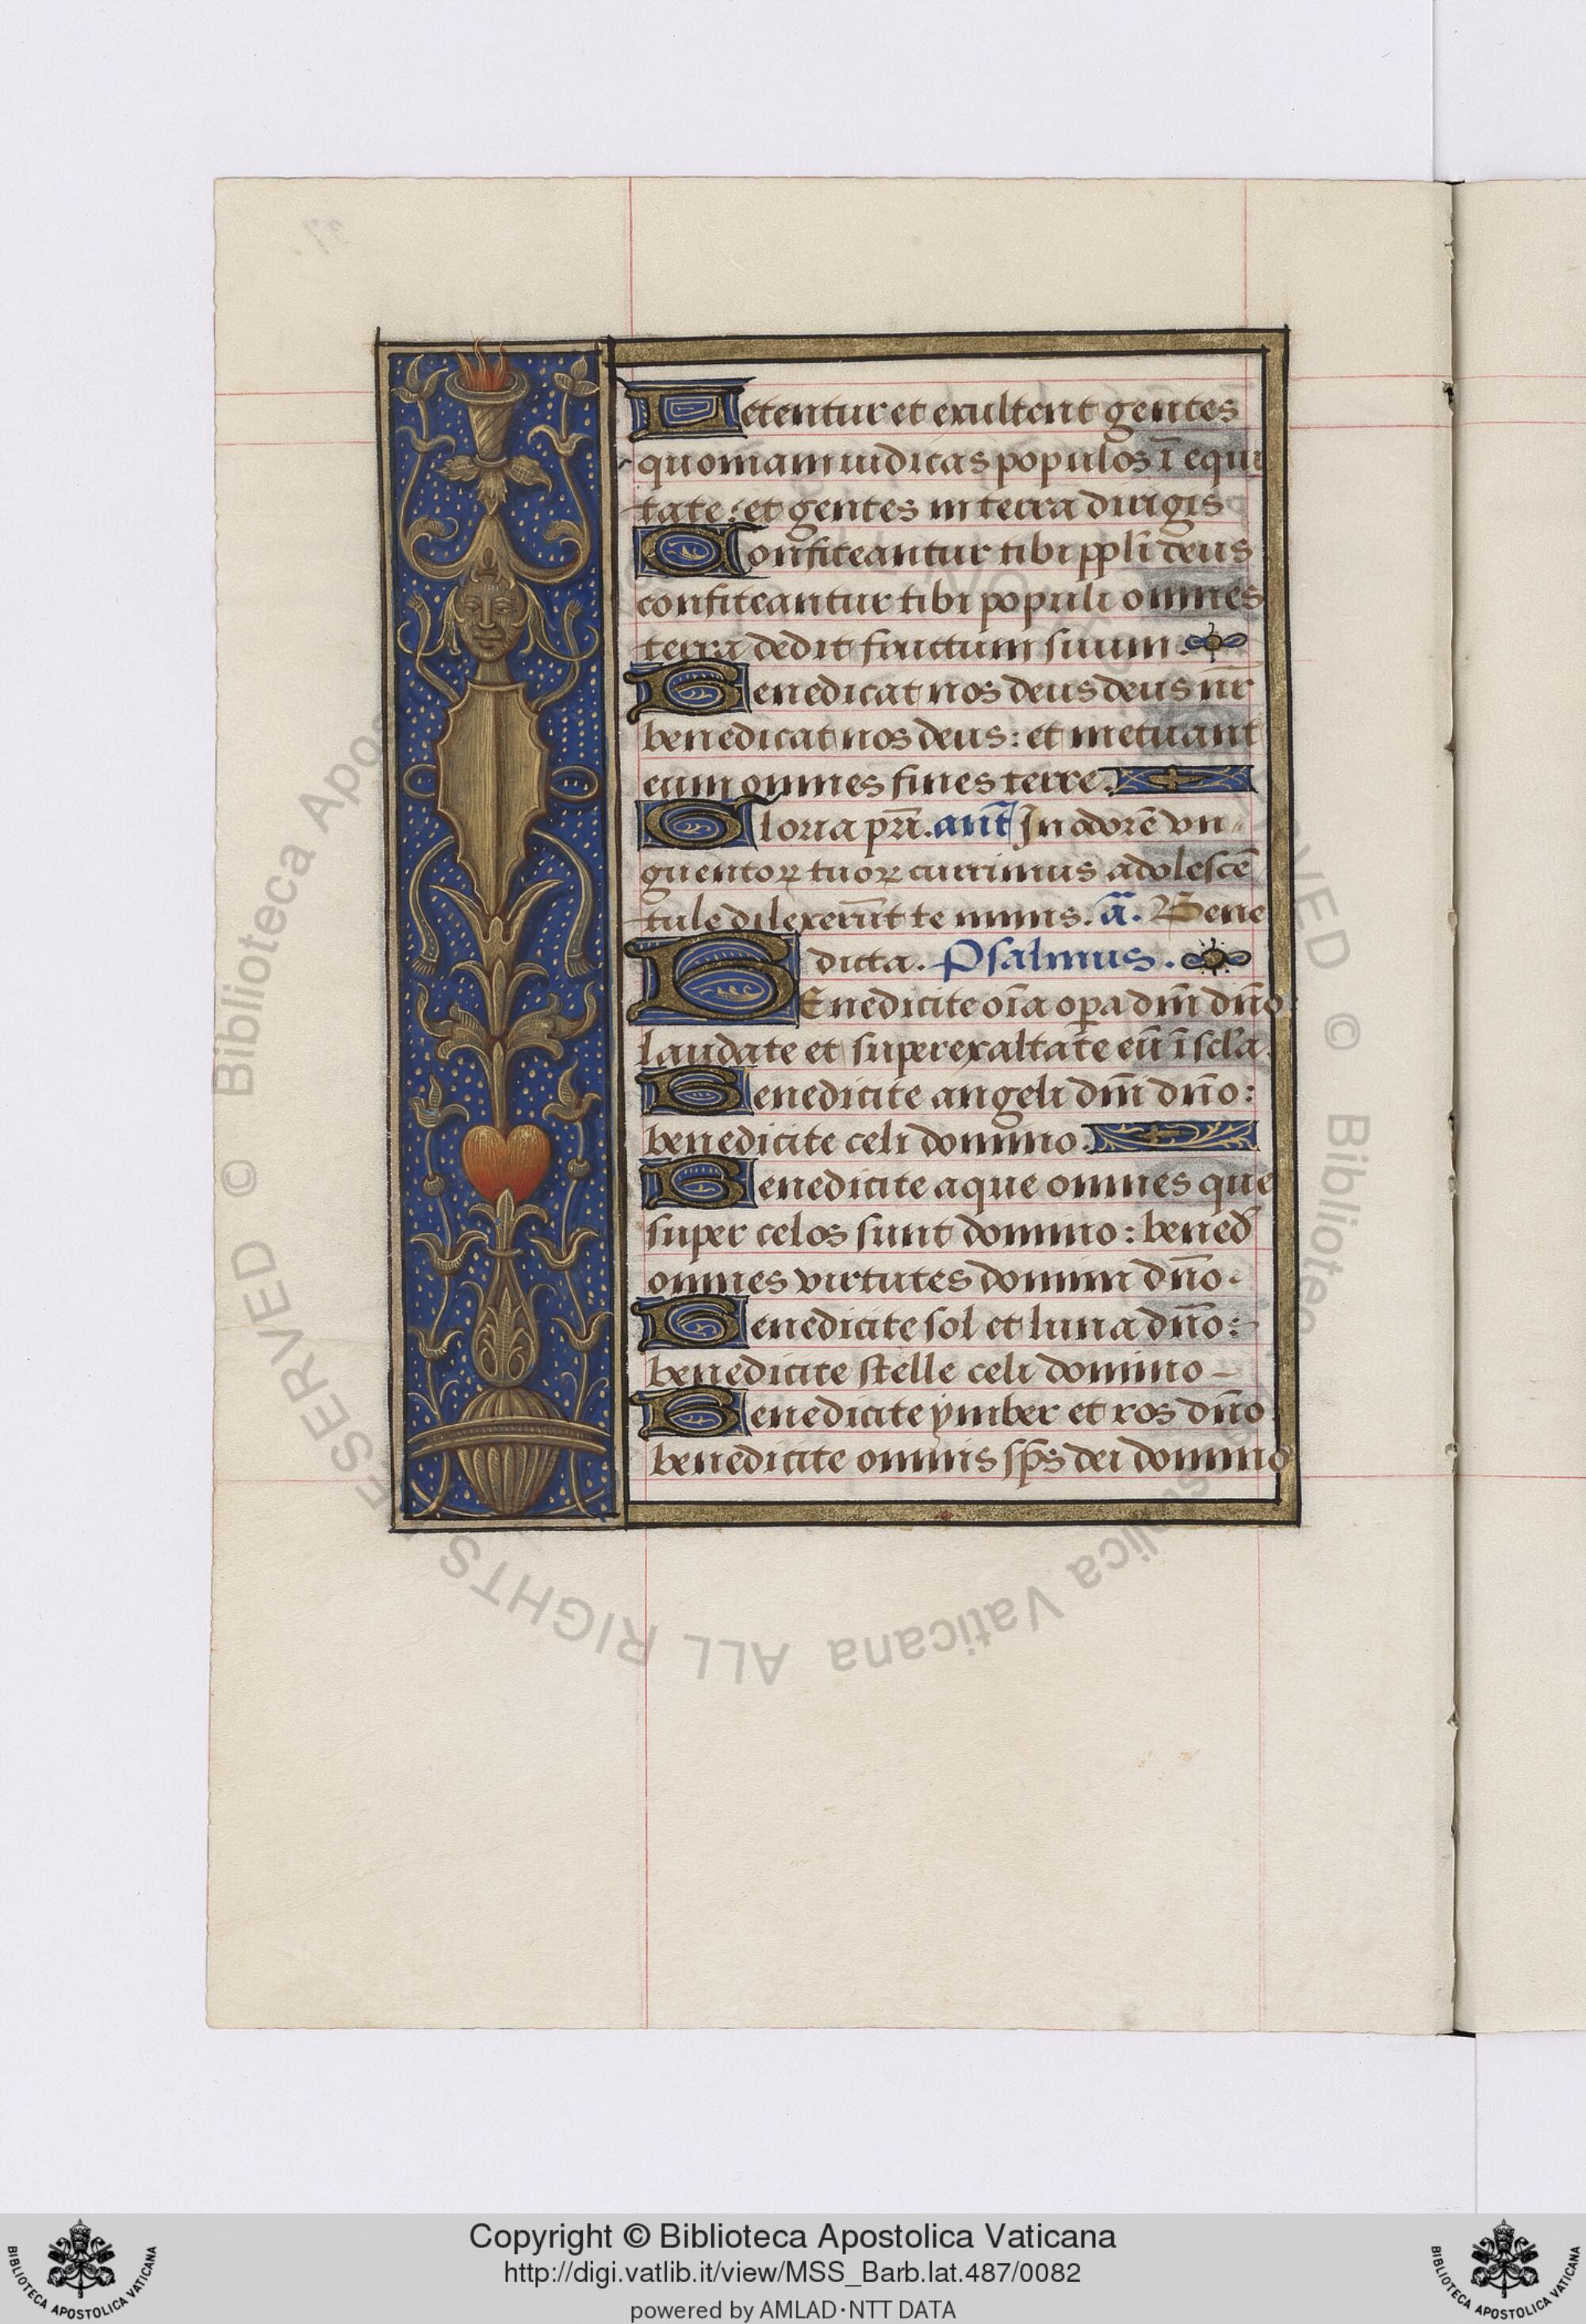 Letentur et exultent gentes
quoniam iudicas populos ī equi
tate: et gentes in terra dirigis
Confiteantur tibi ppl̄i deus
confiteantur tibi populi omnes
terra dedit fructum suum.
Benedicat nos deus deus nr̄
benedicat nos deus: et metuant
eum omnes fines terre.
Gloria pr̄i. añt In odorē vn
guentoꝝ tuoꝝ currimus adolescē
tule dilexerūt te nimis. ā. Bene
dicta. Psalmus.
BEnedicite oīa oꝑa dm̄ dño
laudate et superexaltate eū ī scl̄a.
Benedicite angeli dm̄ dño:
benedicite celi domino.
Benedicite aque omnes que
super celos sunt domino: bened̄
omnes virtutes domini dño.
Benedicite sol et luna dño:
benedicite stelle celi domino
Benedicite ymber et ros dño
benedicite omnis sp̄s dei domino
© Biblioteca Apostolica Vaticana ALL RIGHTS RESERVED
Copyright © Biblioteca Apostolica Vaticana
http://digi.vatlib.it/view/MSS_Barb.lat.487/0082
powered by AMLAD·NTT DATA
BIBLIOTECA APOSTOLICA VATICANA
BIBLIOTECA APOSTOLICA VATICANA